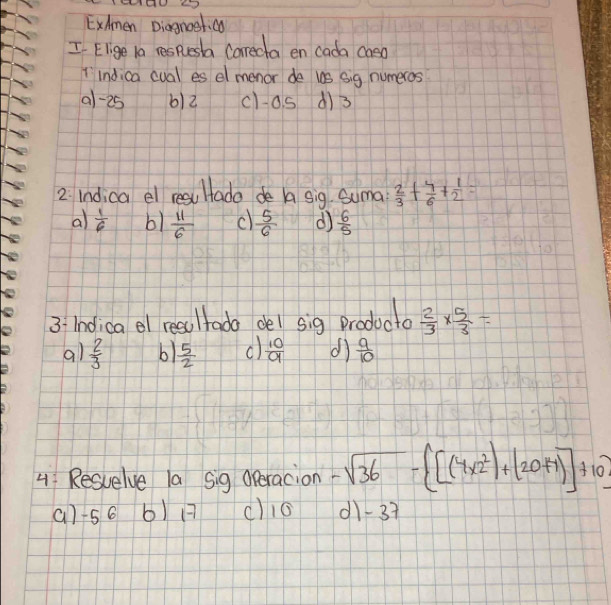 Examen Diagnostico
I- Elige la respuesta correcta en cada caso
1- indica cual es el menor de los sig numeros
a) -25 b) 2 c) -0.5 d) 3
2- indica el resultado de la sig. suma: 2/3 + 4/6 + 1/2 =
a) 1/6 b) 11/6 c) 5/6 d) 6/5
3- Indica el resultado del sig producto 2/3 x 5/3 =
a) 2/3 b) 5/2 c) 10/9 d) 9/10
4- Resuelve la sig operacion -√36 -{[(4x2²)+(20÷4)]+10}
a) -56 b) 17 c) 10 d) -37